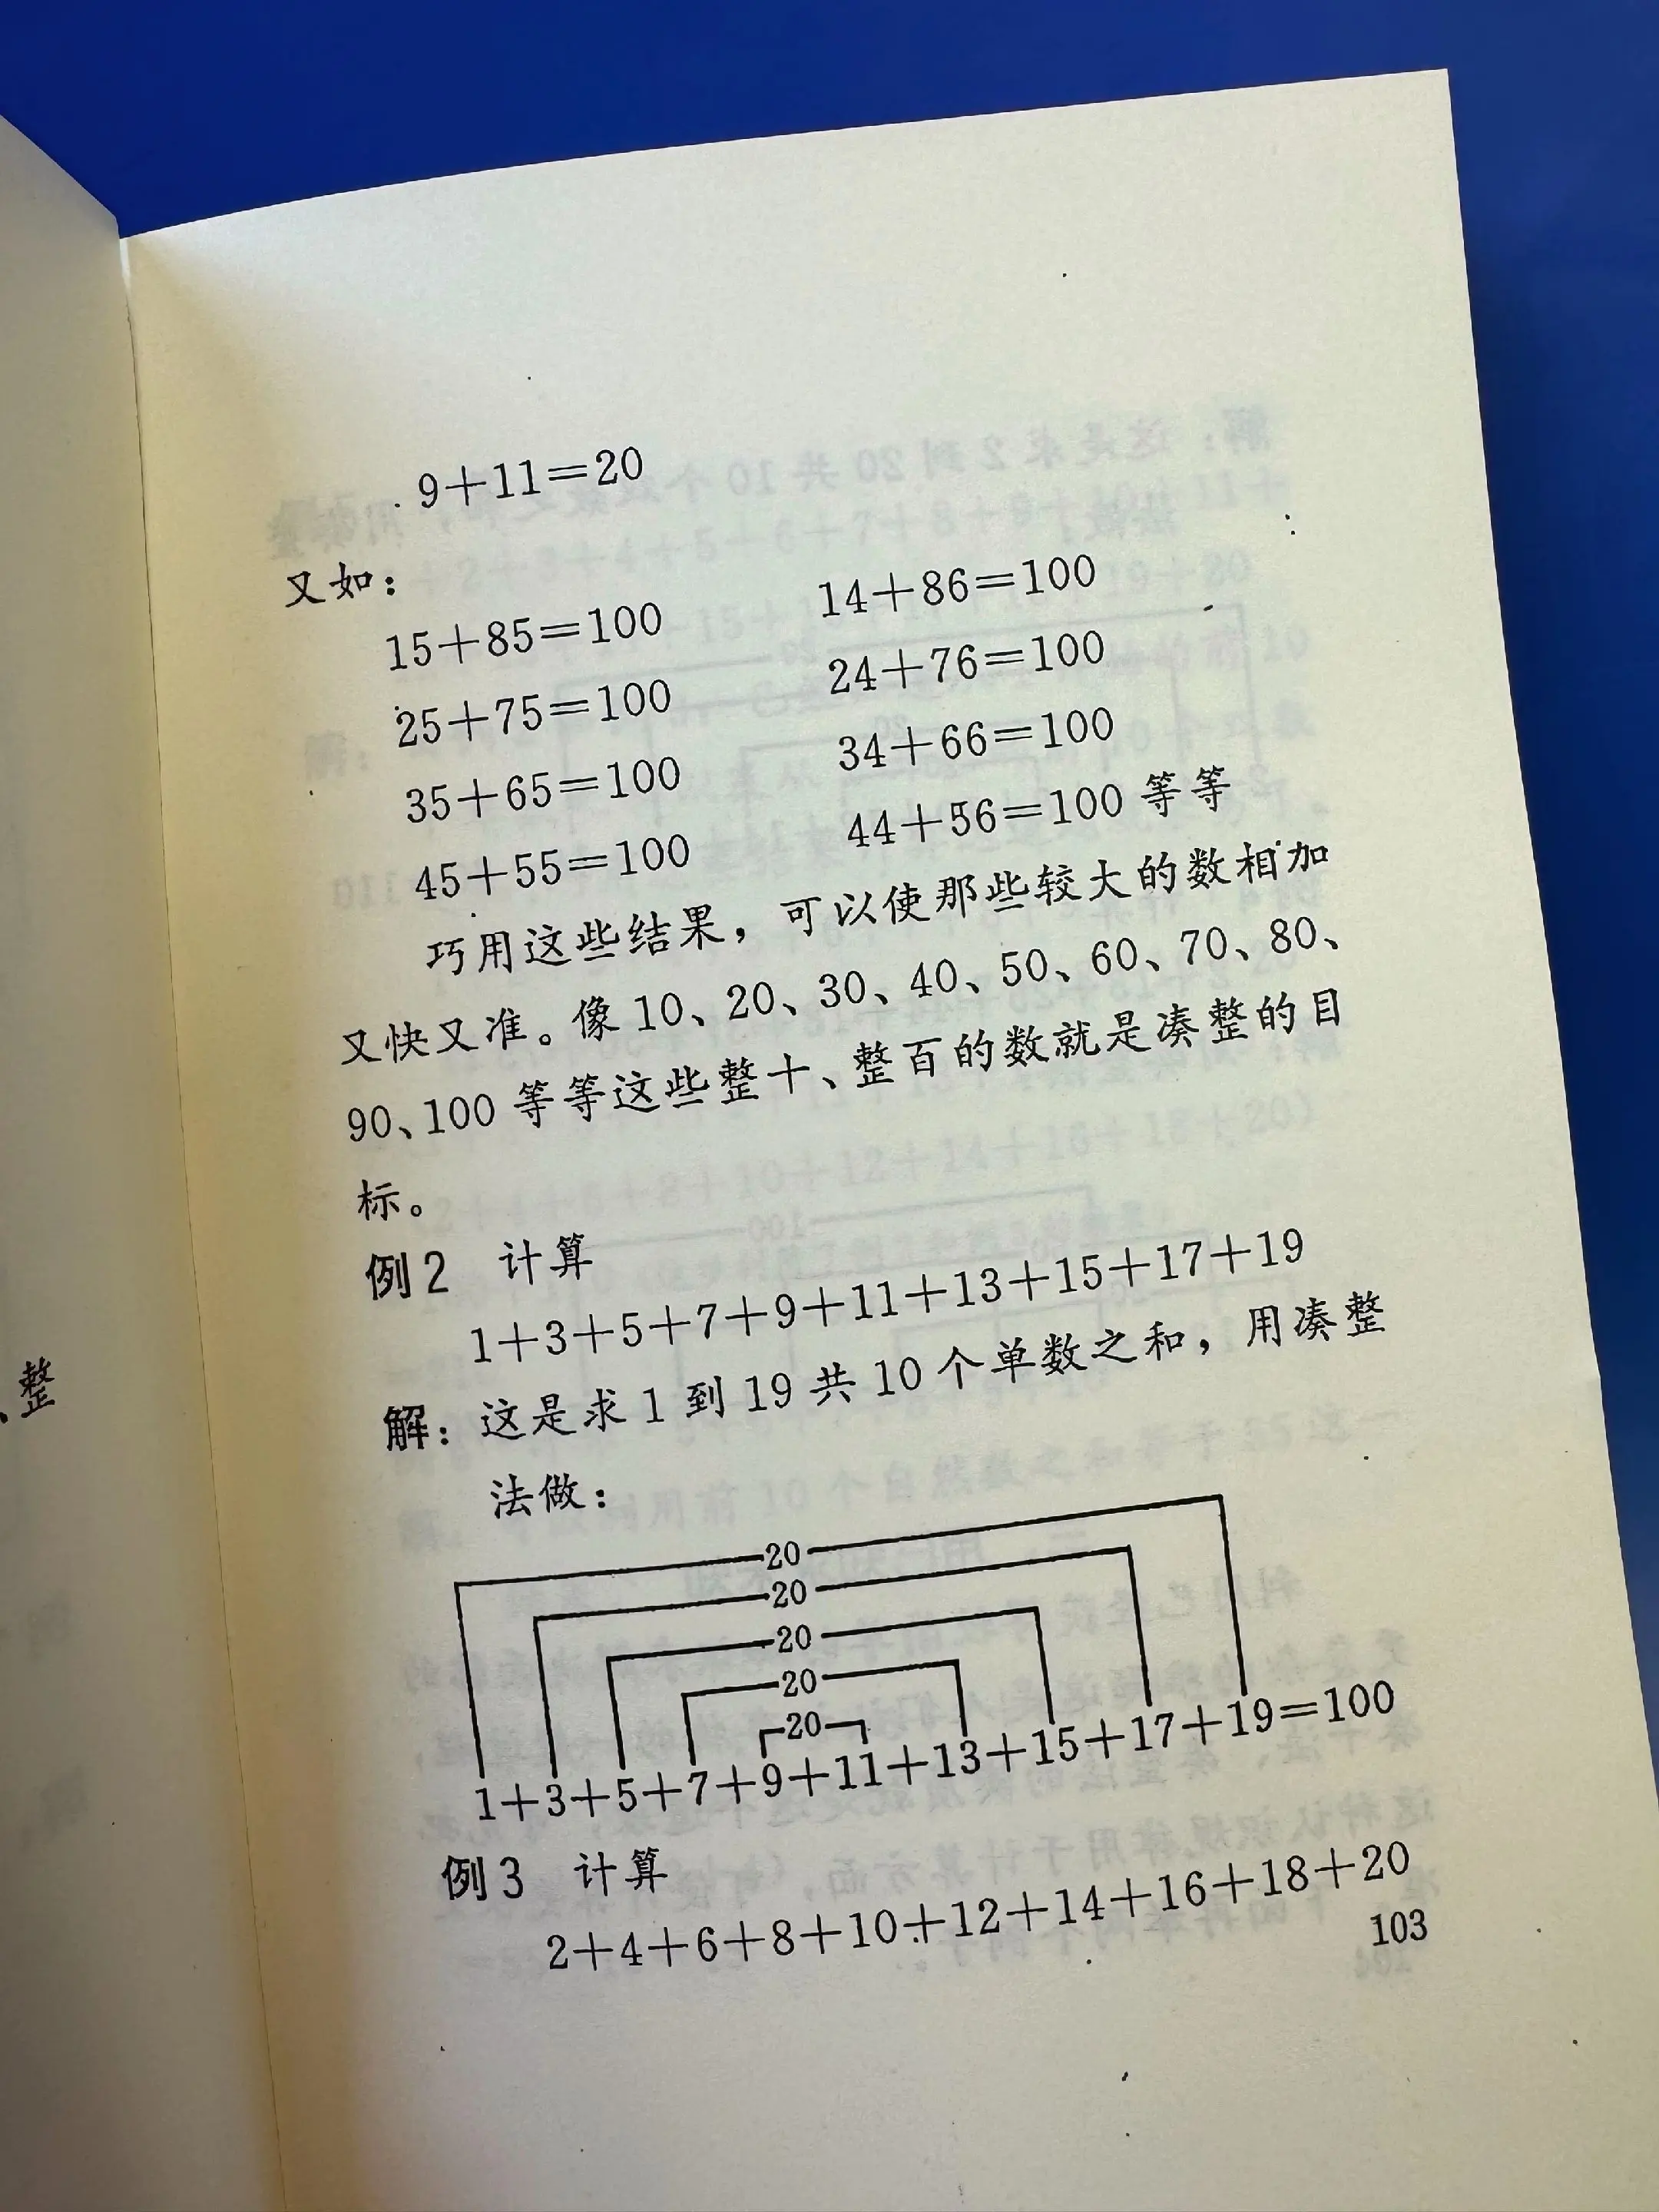 9+11=20
又如：
15+85=100 14+86=100
25+75=100 24+76=100
35+65=100 34+66=100
45+55=100 44+56=100 等等
巧用这些结果，可以使那些较大的数相加
又快又准。像 10、20、30、40、50、60、70、80、
90、100 等等这些整十、整百的数就是凑整的目
标。
例2 计算
1+3+5+7+9+11+13+15+17+19
解：这是求 1 到 19 共 10 个单数之和，用凑整
法做：
20
20
20
20
20
1+3+5+7+9+11+13+15+17+19=100
例3 计算
2+4+6+8+10+12+14+16+18+20
103
、整